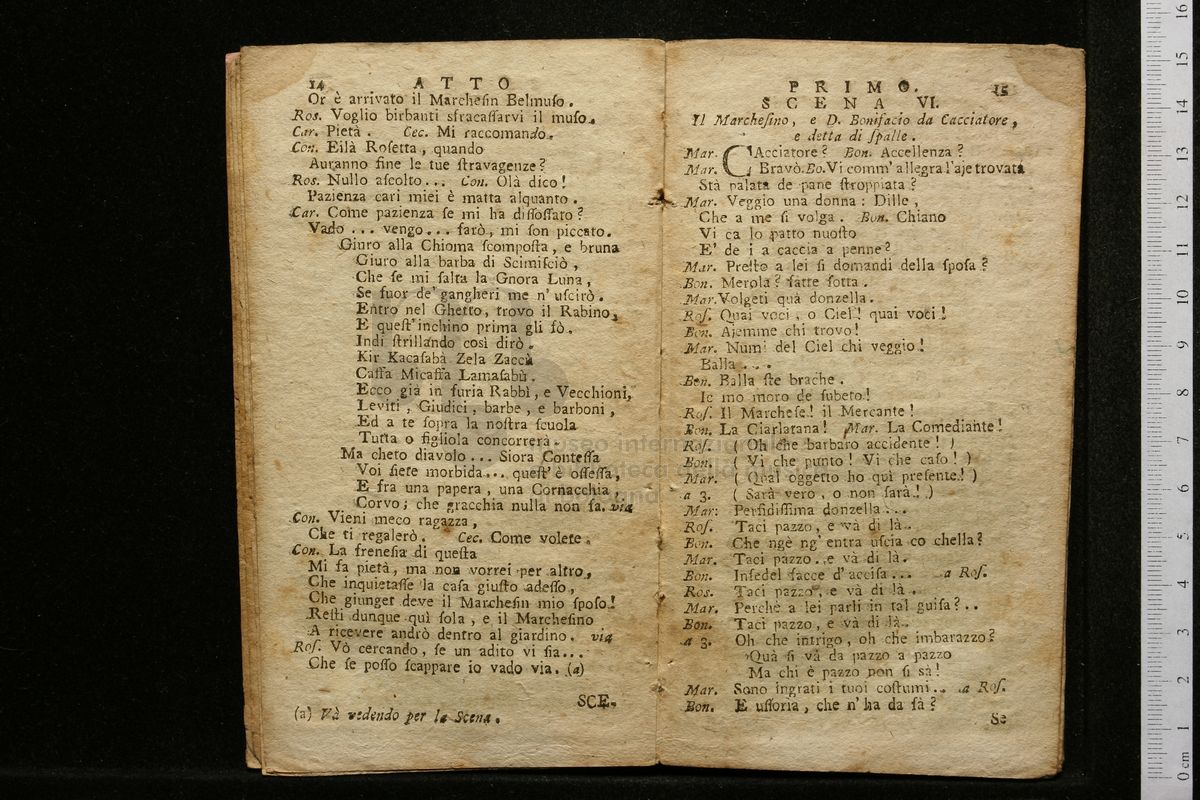 14 ATTO
Or è arrivato il Marchesin Belmuso.
Ros. Voglio birbanti sfracassarvi il muso.
Car. Pietà. Cec. Mi raccomando.
Con. Eilà Rosetta, quando
Auranno fine le tue stravagenze?
Ros. Nullo ascolto... Con. Olà dico!
Pazienza cari miei è matta alquanto.
Car. Come pazienza se mi ha dissossato?
Vado... vengo... farò, mi son piccato.
Giuro alla Chioma scomposta, e bruna
Giuro alla barba di Scimisciò,
Che se mi salta la Gnora Luna,
Se fuor de' gangheri me n' uscirò.
Entro nel Ghetto, trovo il Rabino,
E quest'inchino prima gli fò.
Indi strillando così dirò.
Kir Kacasabà Zela Zaccà
Cassa Micassa Lamasabù.
Ecco già in furia Rabbì, e Vecchioni,
Leviti, Giudici, barbe, e barboni,
Ed a te sopra la nostra scuola
Tutta o figliola concorrerà.
Ma cheto diavolo... Siora Contessa
Voi siete morbida... quest' è ossessa,
E fra una papera, una Cornacchia
Corvo; che gracchia nulla non fa. via
Con. Vieni meco ragazza,
Che ti regalerò. Cec. Come volete.
Con. La frenesia di questa
Mi fa pietà, ma non vorrei per altro,
Che inquietasse la casa giusto adesso,
Che giunger deve il Marchesin mio sposo!
Resti dunque quì sola, e il Marchesino
A ricevere andrò dentro al giardino. via
Ros. Vò cercando, se un adito vi sia...
Che se posso scappare io vado via. (a)
SCE-
(a) Và vedendo per la Scena.
PRIMO. 15
SCENA VI.
Il Marchesino, e D. Bonifacio da Cacciatore,
e detta di spalle.
Mar. CAcciatore? Bon. Accellenza?
Mar. Bravò. Bo. Vi comm' allegra l'aje trovata
Stà palata de pane stroppiata?
Mar. Veggio una donna: Dille,
Che a me si volga. Bon. Chiano
Vi ca lo patto nuosto
E' de i a caccia a penne?
Mar. Presto a lei si domandi della sposa?
Bon. Merola? fatte fotta.
Mar. Volgeti quà donzella.
Ros. Quai voci, o Ciel! quai voci!
Bon. Ajemme chi trovo!
Mar. Numi del Ciel chi veggio!
Balla...
Bon. Balla ste brache.
Ie mo moro de subeto!
Ros. Il Marchese! il Mercante!
Bon. La Ciarlatana! Mar. La Comediante!
Ros. (Oh che barbaro accidente!)
Bon. (Vi che punto! Vi che caso!)
Mar. (Qual oggetto ho quì presente!)
a 3. (Sarà vero, o non sarà!)
Mar: Perfidissima donzella...
Ros. Taci pazzo, e và di là..
Bon. Che ngè ng' entra uscia co chella?
Mar. Taci pazzo, e và di là.
Bon. Infedel facce d' accisa... a Ros.
Ros. Taci pazzo, e và di là..
Mar. Perchè a lei parli in tal guisa?..
Bon. Taci pazzo, e và di là.
a 3. Oh che intrigo, oh che imbarazzo?
Quà si và da pazzo a pazzo
Ma chi è pazzo non si sà!
Mar. Sono ingrati i tuoi costumi.. a Ros.
Bon. E ussoria, che n' ha da fà?
Se